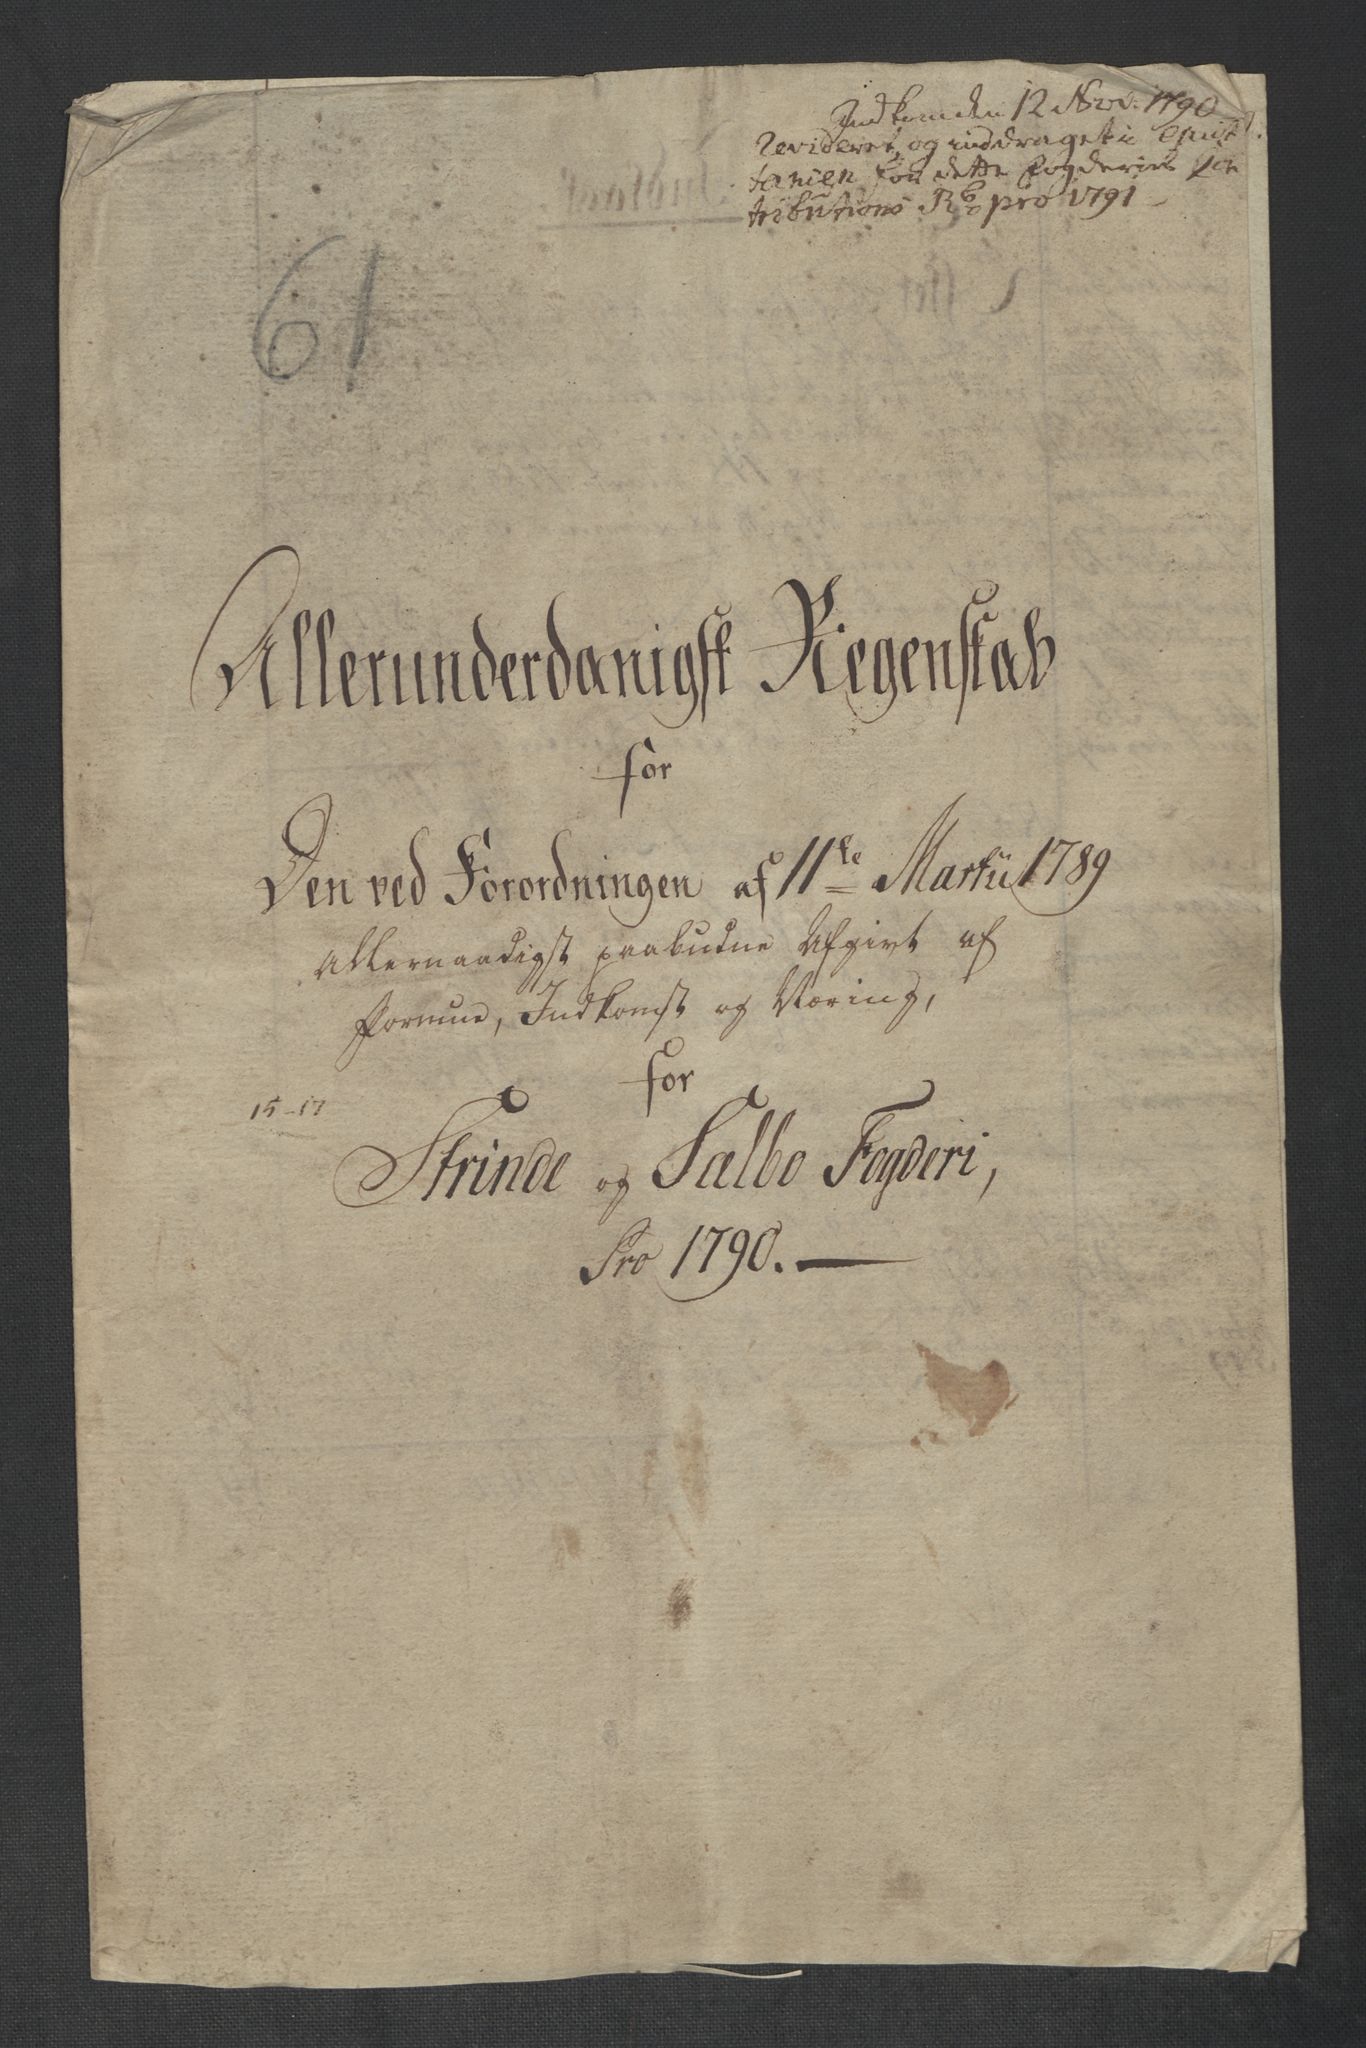 Indkom den 12 Nov: 1790
Revideret, og inddraget i Quit
tancen for dette Fogderies Con
tributions Rb pro 1791
61
Allerunderdanigst Regenskab
for
Den ved Forordningen af 11te Martii 1789
Allernaadigst paabudne Afgivt af
Formue, Indkomst og Næring,
for
15-17
Strinde og Sælbo Fogderi,
Pro 1790.